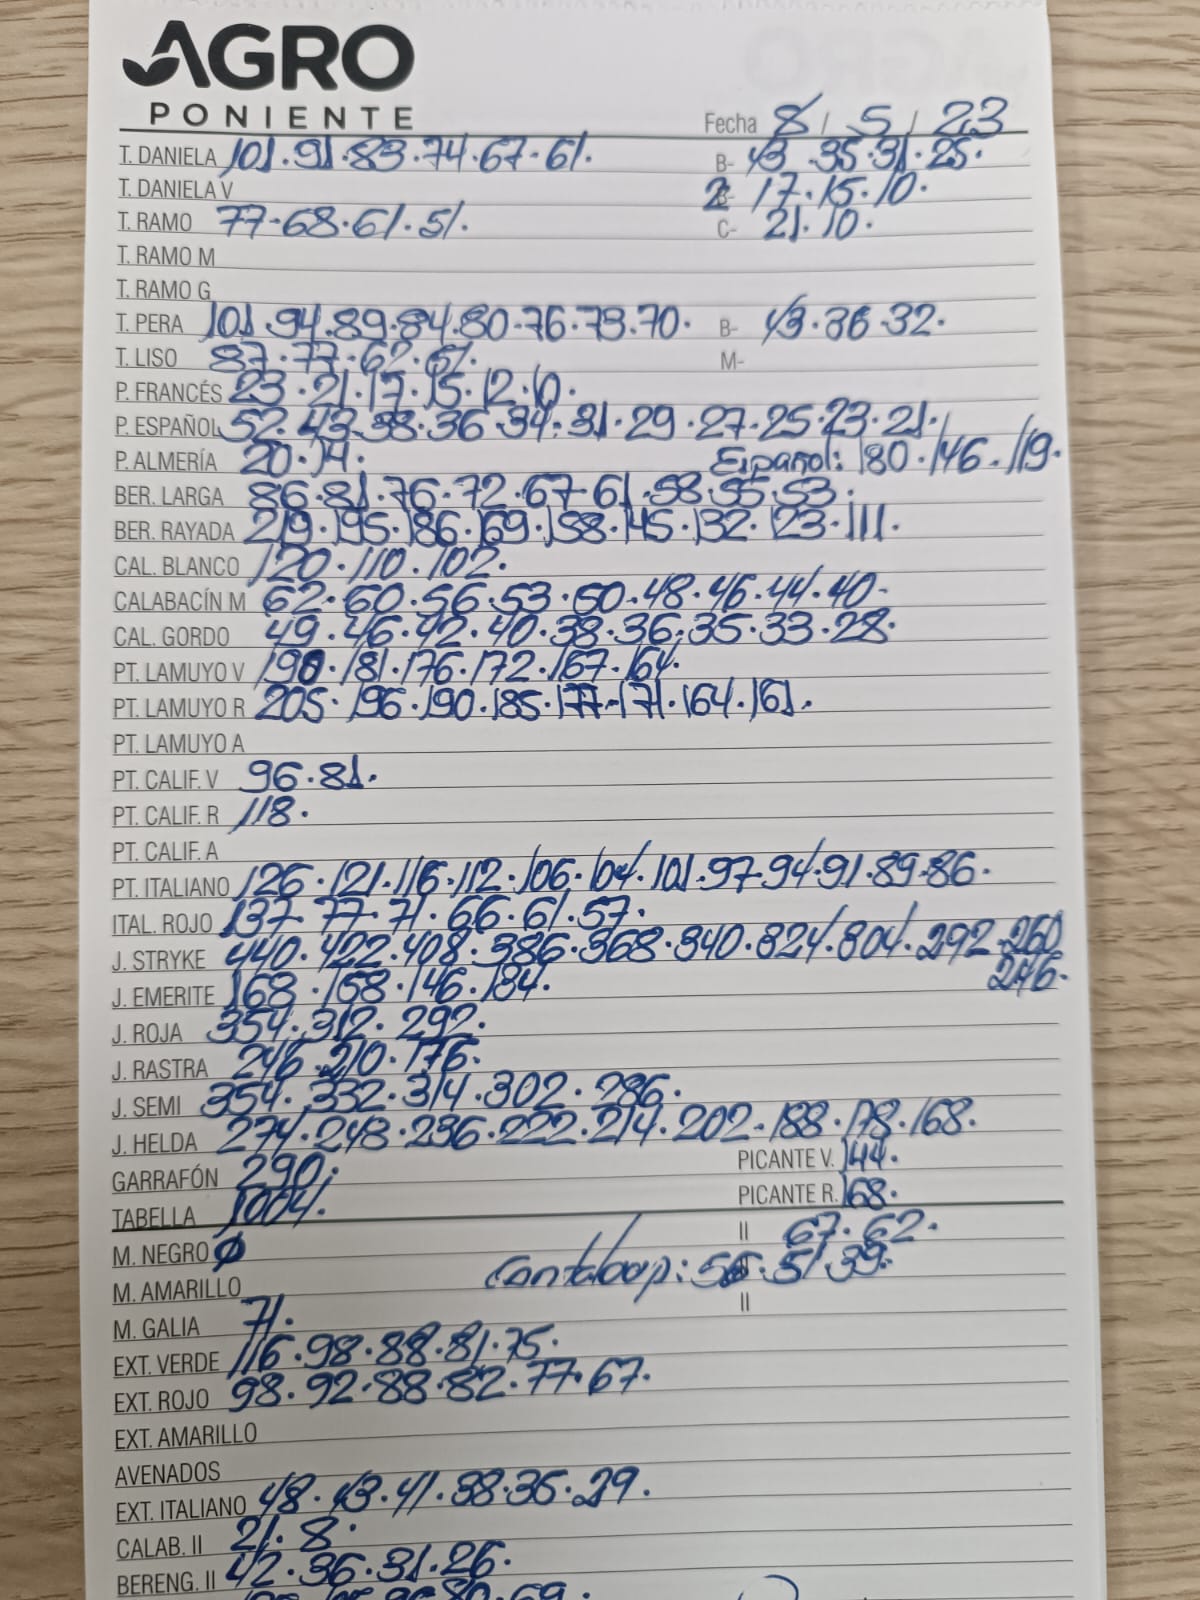 AGRO
PONIENTE
Fecha 8 / 5 / 23
T. DANIELA 101.91.83.74.67.61. B- 43.35.31.25.
T. DANIELA V 2 17.15.10.
T. RAMO 77.68.61.51. C- 21.10.
T. RAMO M
T. RAMO G
T. PERA 101.94.89.84.80.76.73.70. B- 43.36.32.
T. LISO 87.77.62.51. M-
P. FRANCÉS 23.21.17.15.12.10.
P. ESPAÑOL 52.43.38.36.34.31.29.27.25.23.21.
P. ALMERÍA 20.14. Español: 180.146.119.
BER. LARGA 86.81.76.72.67.61.58.55.53.
BER. RAYADA 219.195.186.169.158.145.132.123.111.
CAL. BLANCO 120.110.102.
CALABACÍN M 62.60.56.53.50.48.46.44.40.
CAL. GORDO 49.46.42.40.38.36.35.33.28.
PT. LAMUYO V 190.181.176.172.167.164.
PT. LAMUYO R 205.196.190.185.177.171.164.161.
PT. LAMUYO A
PT. CALIF. V 96.81.
PT. CALIF. R 118.
PT. CALIF. A
PT. ITALIANO 126.121.116.112.106.104.101.97.94.91.89.86.
ITAL. ROJO 137.77.71.66.61.57.
J. STRYKE 440.422.408.386.368.340.324.304.292.260
246.
J. EMERITE 168.158.146.134.
J. ROJA 354.312.292.
J. RASTRA 246.210.176.
J. SEMI 354.332.314.302.286.
J. HELDA 274.248.236.222.214.202.188.178.168.
GARRAFÓN 290. PICANTE V. 144.
TABELLA 1004. PICANTE R. 168.
M. NEGRO Ø II 67.62.
M. AMARILLO Cantaloup: 51.39.
M. GALIA 71. II
EXT. VERDE 116.98.88.81.75.
EXT. ROJO 98.92.88.82.77.67.
EXT. AMARILLO
AVENADOS
EXT. ITALIANO 48.43.41.38.35.29.
CALAB. II 21.8.
BERENG. II 42.36.31.26.